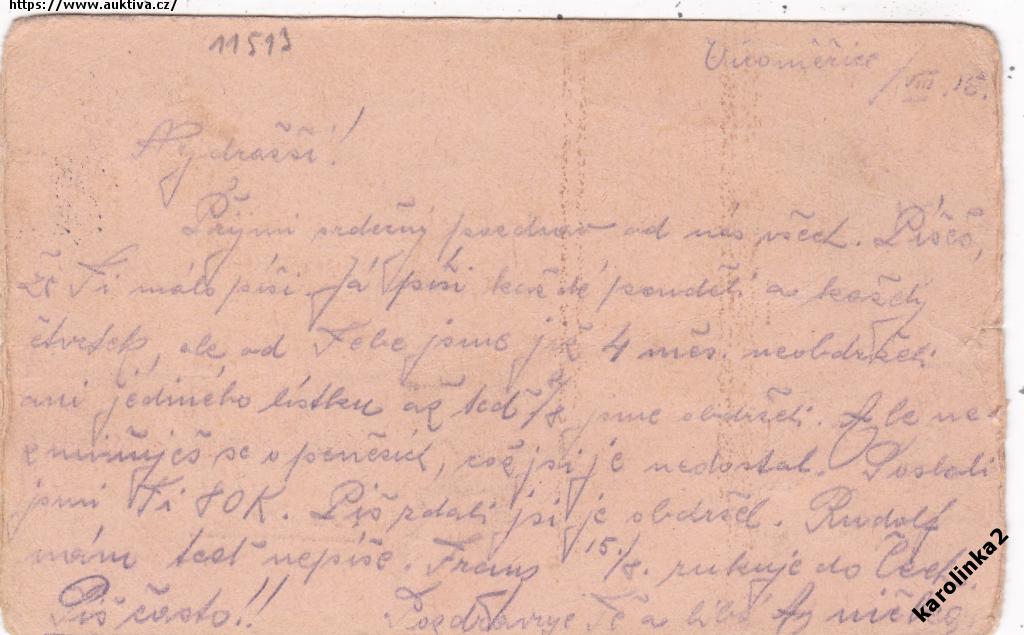 https://www.auktiva.cz/
11513
Únoměřice
/VIII. 15.
Nejdražší!
Přijmi srdečný pozdrav od nás všech. Píšeš,
že Ti málo píši. Já píši každé pondělí a každý
čtvrtek, ale od Tebe jsme již 4 měs. neobdrželi
ani jediného lístku až teď /8 jsme obdrželi. Ale ne-
zmiňuješ se o penězích, což jsi je nedostal. Poslali
jsmi Ti 80K. Piš zdali jsi je obdržel. Rudolf
nám teď nepíše. Franz 15./8. rukuje do Čech
Piš často!! Pozdravuje Tě a líbá
karolinka2